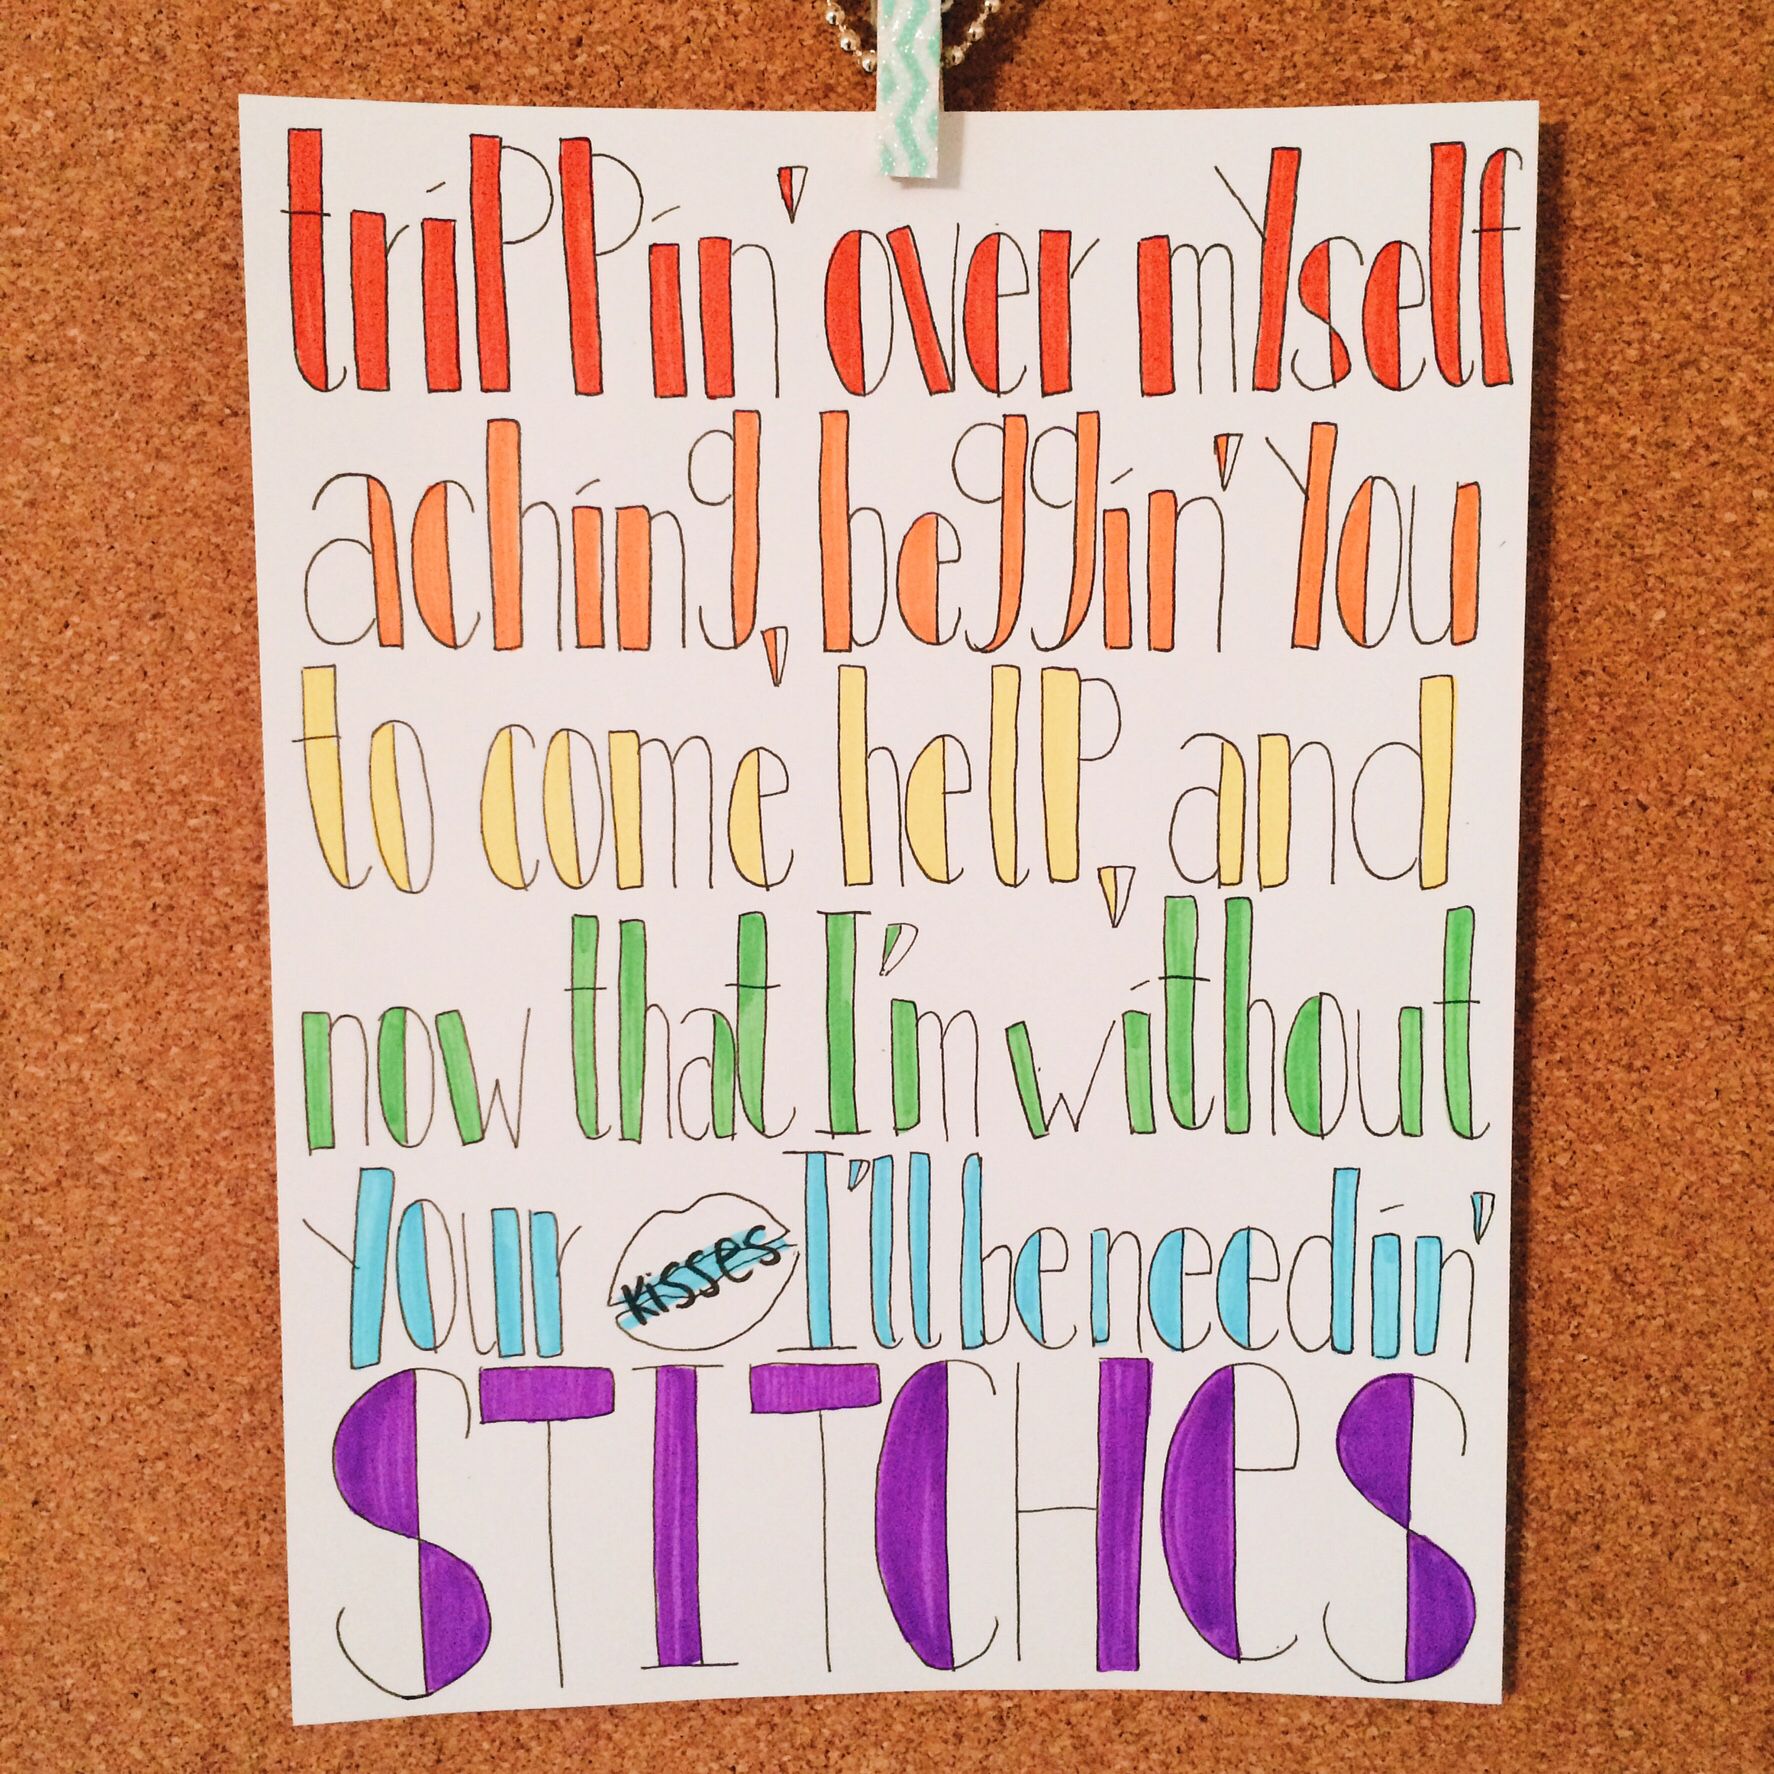 trippin' over myself
aching, beggin' you
to come help, and
now that I'm without
your kisses I'll be needin'
STITCHES